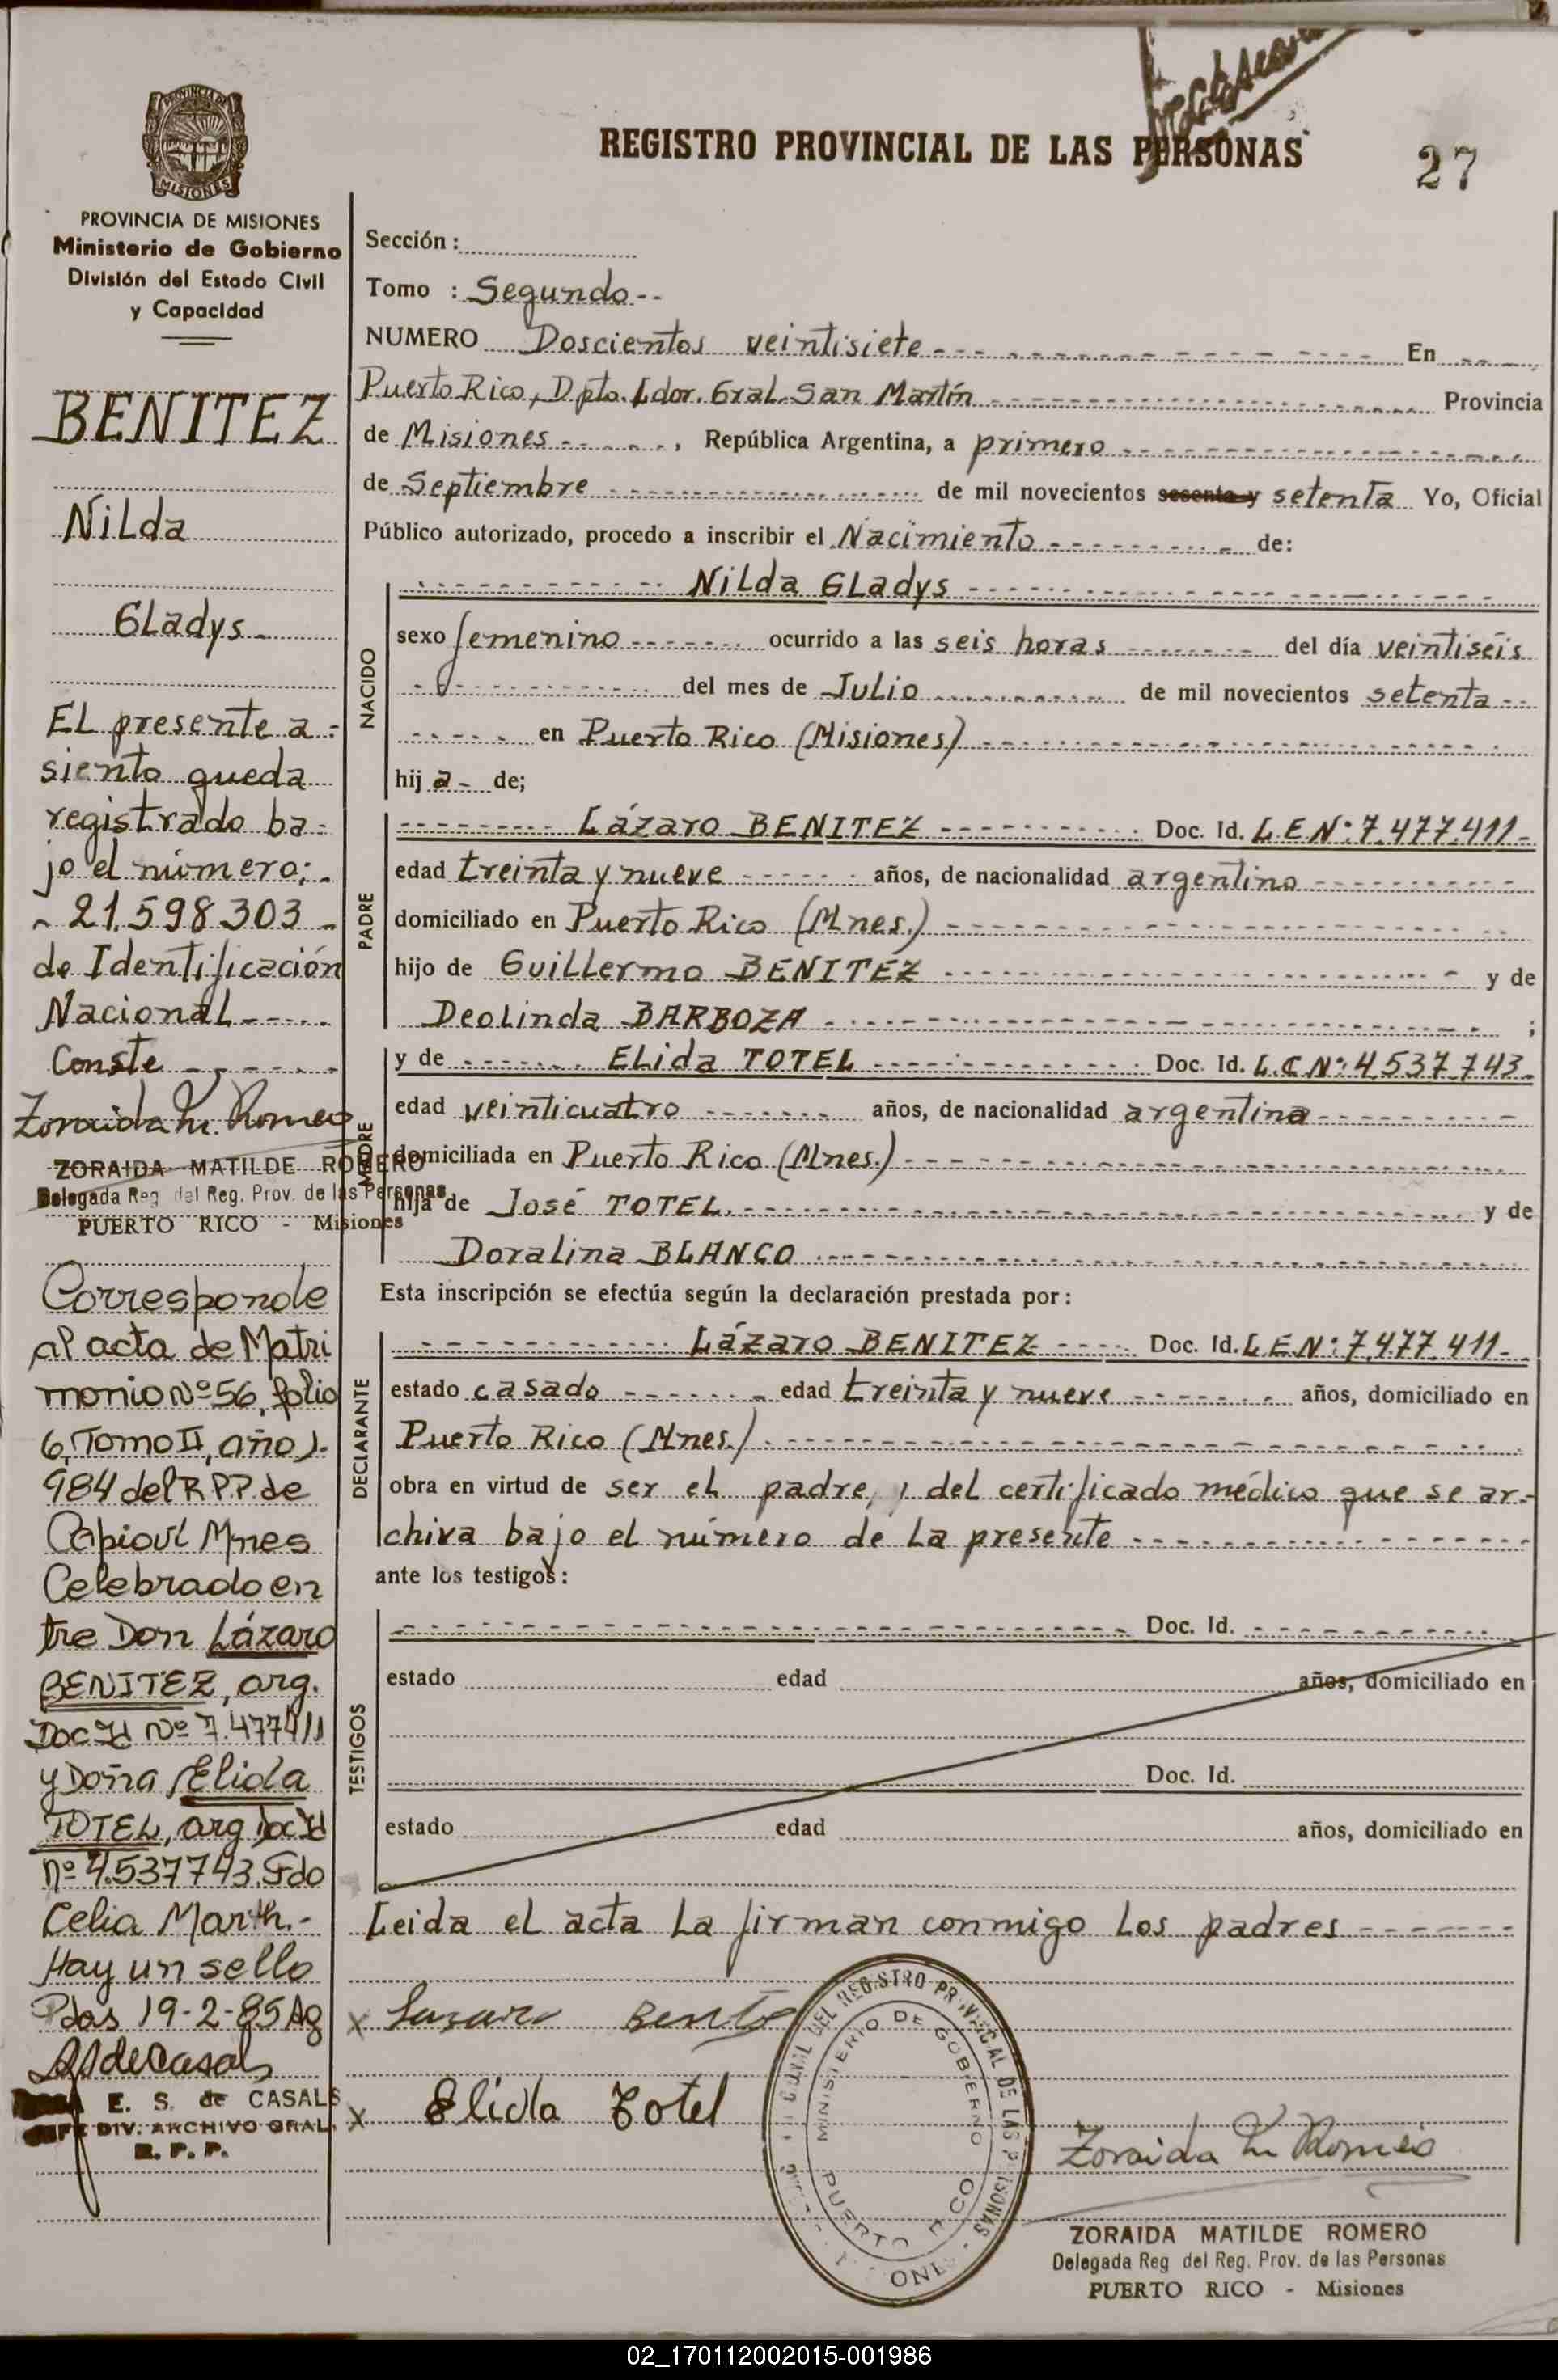 REGISTRO PROVINCIAL DE LAS PERSONAS
27
PROVINCIA DE MISIONES
PROVINCIA DE MISIONES
Ministerio de Gobierno
División del Estado Civil
y Capacidad
BENITEZ
Nilda
Gladys-
El presente a-
siento queda
registrado ba-
jo el número:-
- 21.598.303 -
de Identificación
Nacional-----
Conste ------
Zoraida M. Romero
ZORAIDA MATILDE ROMERO
Delegada Reg del Reg. Prov. de las Personas
PUERTO RICO - Misiones
Corresponde
al acta de Matri
monio Nº 56, folio
6, Tomo II, año 1.
984 del R.P.P. de
Capioví Mnes
Celebrado en
tre Don Lázaro
BENITEZ, arg.
Doc Id Nº 7.477411
y Doña Elida
TOTEL, arg Doc Id
nº 4.537743. Fdo
Celia Marth.-
Hay un sello
Pdas 19-2-85 Ag
E. S. de CASALS
JEFE DIV. ARCHIVO GRAL.
R. P. P.
Sección :
Tomo : Segundo--
NUMERO Doscientos veintisiete --- En
Puerto Rico, Dpto. Ldor. Gral. San Martín --- Provincia
de Misiones ---, República Argentina, a primero ---
de Septiembre --- de mil novecientos sesenta y setenta Yo, Oficial
Público autorizado, procedo a inscribir el Nacimiento --- de:
NACIDO
--- Nilda Gladys ---
sexo femenino --- ocurrido a las seis horas --- del día veintiséis
--- del mes de Julio --- de mil novecientos setenta --
--- en Puerto Rico (Misiones) ---
hij a- de;
PADRE
--- Lázaro BENITEZ --- Doc. Id. L.E.Nº: 7.477.411-
edad treinta y nueve --- años, de nacionalidad argentino ---
domiciliado en Puerto Rico (Mnes.) ---
hijo de Guillermo BENITEZ --- y de
Deolinda BARBOZA --- ;
MADRE
y de --- Elida TOTEL --- Doc. Id. L.C.Nº: 4.537.743.
edad veinticuatro --- años, de nacionalidad argentina ---
domiciliada en Puerto Rico (Mnes.) ---
hija de José TOTEL. --- y de
Doralina BLANCO ---
Esta inscripción se efectúa según la declaración prestada por:
DECLARANTE
--- Lázaro BENITEZ --- Doc. Id. L.E.Nº: 7.477.411-
estado casado --- edad treinta y nueve --- años, domiciliado en
Puerto Rico (Mnes.) ---
obra en virtud de ser el padre, y del certificado médico que se ar-
chiva bajo el número de la presente ---
ante los testigos:
TESTIGOS
--- Doc. Id. ---
estado edad años, domiciliado en
Doc. Id.
estado edad años, domiciliado en
Leida el acta la firman conmigo los padres ---
x Lazaro Benito
x Elida Totel
DEL REGISTRO PROVINCIAL DE LAS PERSONAS
MINISTERIO DE GOBIERNO
PUERTO RICO
Zoraida M Romero
ZORAIDA MATILDE ROMERO
Delegada Reg del Reg. Prov. de las Personas
PUERTO RICO - Misiones
02_170112002015-001986